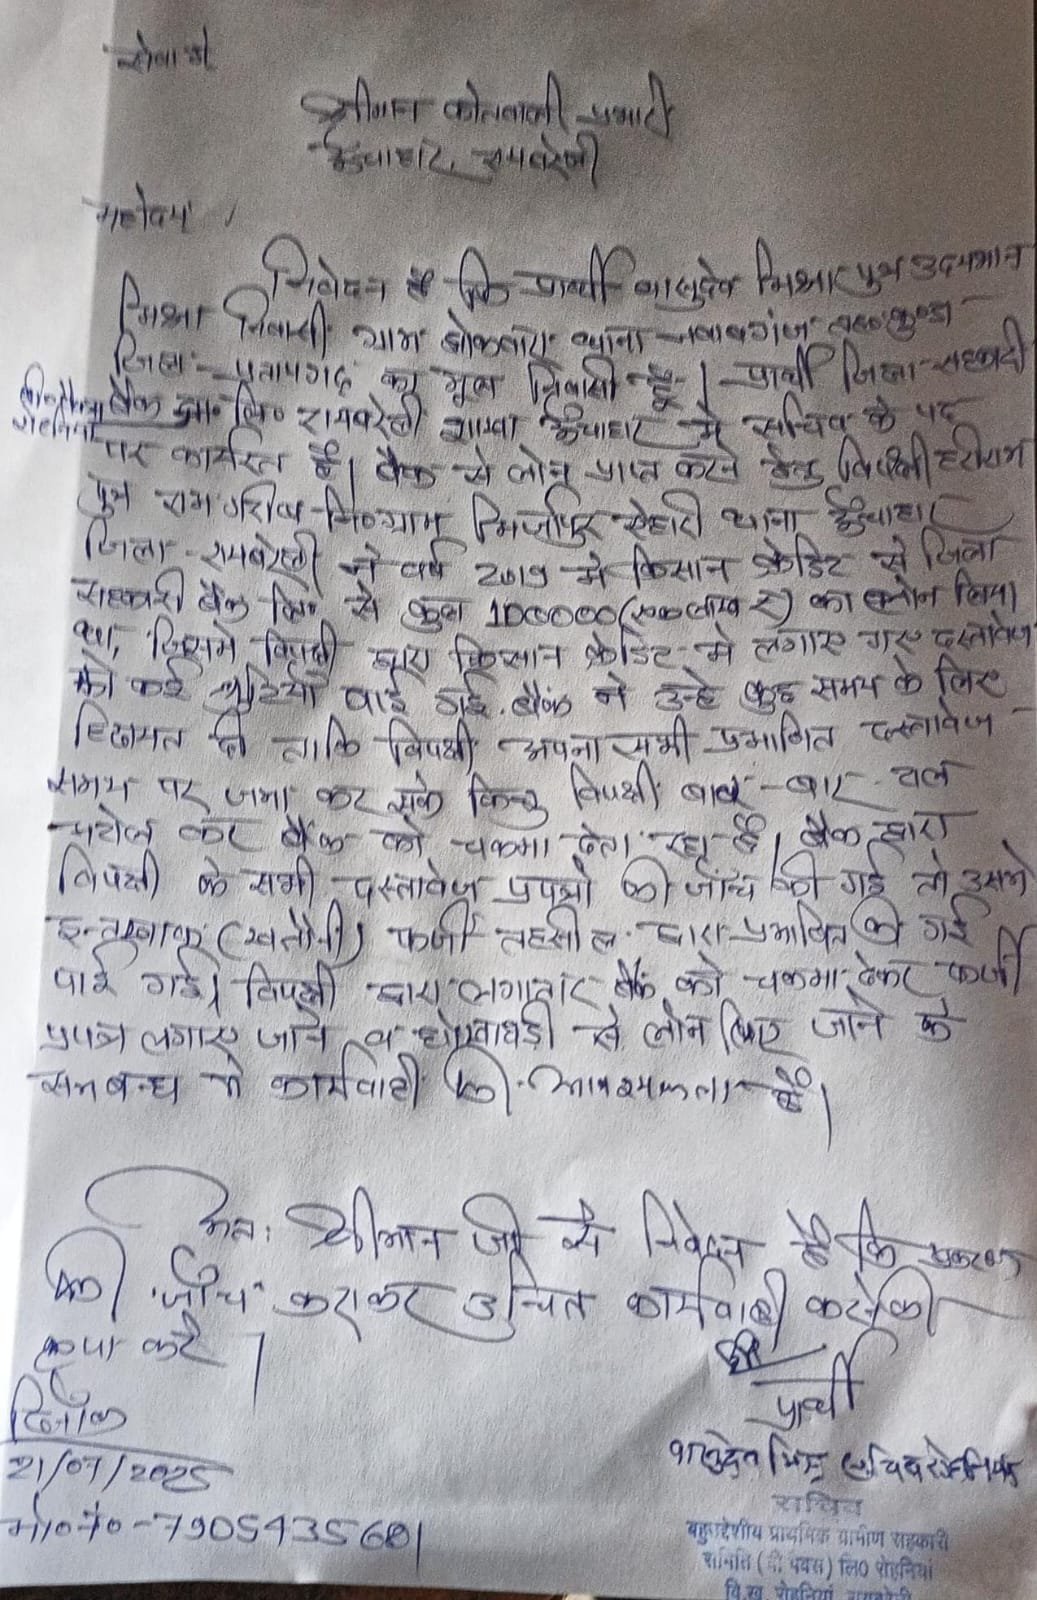 सेवा में
श्रीमान कोतवाली प्रभारी
ऊँचाहार, रायबरेली
महोदय,
निवेदन है कि प्रार्थी वासुदेव मिश्रा पुत्र उदयभान
मिश्रा निवासी ग्राम थाना नवाबगंज तह० कुण्डा
जिला - प्रतापगढ़ का मूल निवासी हूँ। प्रार्थी जिला सहकारी
बैंक लि० रायबरेली शाखा ऊँचाहार में सचिव के पद
रोहनिया
पर कार्यरत है। बैंक से लोन प्राप्त करने हेतु विपक्षी हरीराम
पुत्र राम नि० ग्राम मिर्जापुर ऐहारी थाना ऊँचाहार
जिला - रायबरेली ने वर्ष 2019 में किसान क्रेडिट से जिला
सहकारी बैंक लि० से कुल 100000 (एक लाख रु) का लोन लिया
था, जिसमे विपक्षी द्वारा किसान क्रेडिट में लगाए गए दस्तावेज
की कई त्रुटियाँ पाई गई. बैंक ने उन्हे कुछ समय के लिए
हिदायत दी ताकि विपक्षी अपना सभी प्रमाणित दस्तावेज
समय पर जमा कर सके किन्तु विपक्षी बार-बार
कर बैंक को चकमा देता रहा है। बैंक द्वारा
विपक्षी के सभी दस्तावेज प्रपत्रो की जाँच की गई तो उसमे
(खतौनी) फर्जी तहसील द्वारा की गई
पाई गई। विपक्षी द्वारा लगातार बैंक को चकमा देकर फर्जी
प्रपत्र लगाए जाने व धोखाधड़ी से लोन लिए जाने के
सम्बन्ध में कार्यवाही की आवश्यकता है।
अत: श्रीमान जी से निवेदन है कि प्रकरण
की जाँच कराकर उचित कार्यवाही करने की
कृपा करें।
प्रार्थी
दिनाँक
21/07/2025
वासुदेव मिश्र सचिव रोहनिया
मो० न० - 7905435681
सचिव
बहुउद्देशीय प्राथमिक ग्रामीण सहकारी
समिति (बी पैक्स) लि० रोहनियां
वि.ख. रोहनियां, रायबरेली